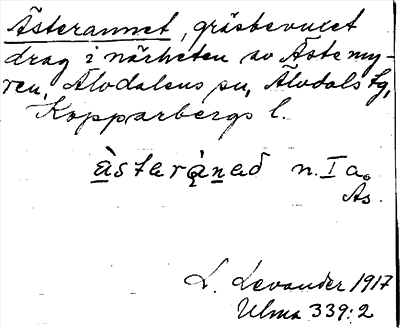 Åsterannet, gräsbevuxet
drag i närheten av Åstemy-
ren, Älvdalens sn, Älvdals tg,
Kopparbergs l.
àstarànað n. I a.
Ås.
L. Levander 1917
Ulma 339:2